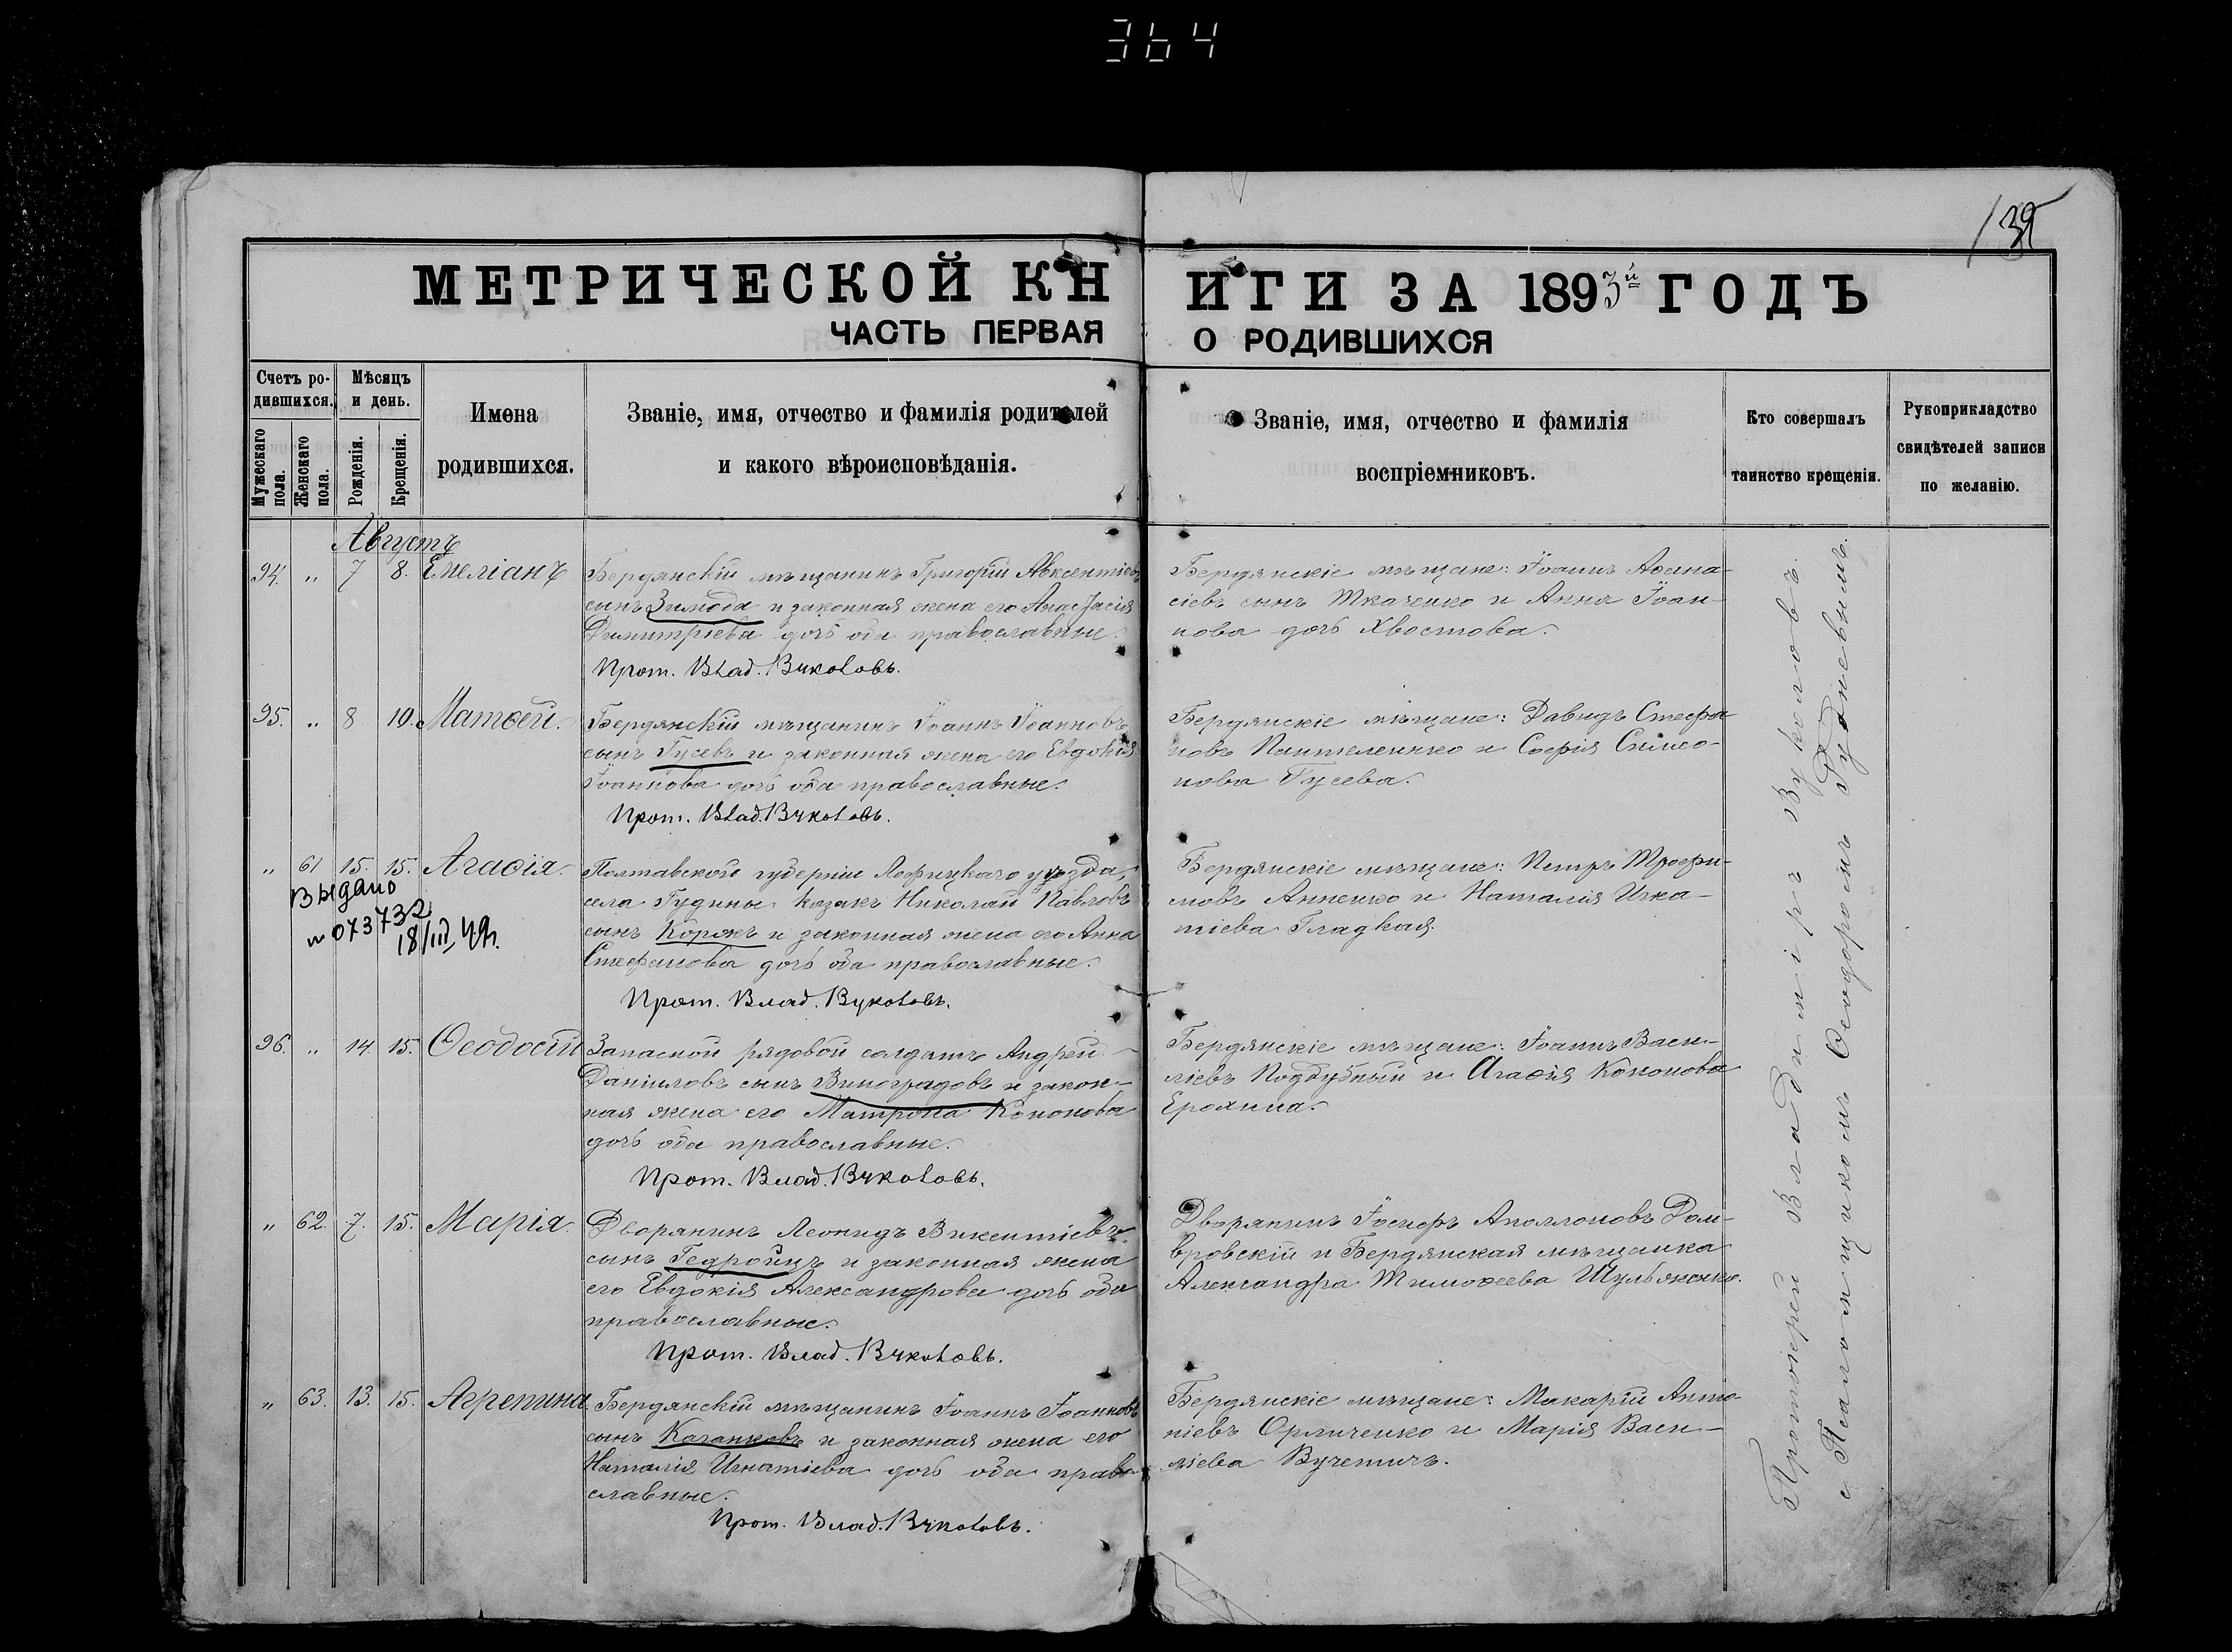 364
139
МЕТРИЧЕСКОЙ КНИГИ ЗА 1893й ГОДЪ
ЧАСТЬ ПЕРВАЯ О РОДИВШИХСЯ
Счетъ ро-
дившихся.
Мужескаго пола.
Женскаго пола.
Мѣсяцъ
и день.
Рожденія.
Крещенія.
Имена
родившихся.
Званіе, имя, отчество и фамилія родителей
и какого вѣроисповѣданія.
Званіе, имя, отчество и фамилія
воспріемниковъ.
Кто совершалъ
таинство крещенія.
Рукоприкладство
свидѣтелей записи
по желанію.
Августъ
94. „ 7 8. Емеліанъ
Бердянскій мѣщанинъ Григорій Авксентіевъ
сынъ Зимода и законная жена его Анастасія
Димитріева дочь оба православные.
Прот. Влад. Вуколовъ.
Бердянскіе мѣщане: Іоаннъ Аѳана-
сіевъ сынъ Ткаченко и Анна Іоан-
нова дочь Хвостова.
95. „ 8 10. Матѳей.
Бердянскій мѣщанинъ Іоаннъ Іоанновъ
сынъ Гусевъ и законная жена его Евдокія
Іоаннова дочь оба православные.
Прот. Влад. Вуколовъ.
Бердянскіе мѣщане: Давидъ Стефа-
новъ Пантеленко и Софія Симео-
нова Гусева.
„ 61 15. 15. Агаѳія.
Выдано
№ 073732
18/III 49г.
Полтавской губерніи Лофицкаго уѣзда,
села Гудины козакъ Николай Павловъ
сынъ Коржъ и законная жена его Анна
Стефанова дочь оба православные.
Прот. Влад. Вуколовъ.
Бердянскіе мѣщане: Петръ Трофи-
мовъ Анненко и Наталія Игна-
тіева Гладкая.
96. „ 14. 15. Ѳеодосій
Запасной рядовой солдатъ Андрей
Даніиловъ сынъ Виноградовъ и закон-
ная жена его Матрона Кононова
дочь оба православные.
Прот. Влад. Вуколовъ.
Бердянскіе мѣщане: Іоаннъ Васи-
ліевъ Поддубный и Агаѳія Кононова
Ерохина.
„ 62. 7. 15. Марія.
Дворянинъ Леонидъ Викентіевъ
сынъ Гедройцъ и законная жена
его Евдокія Александрова дочь оба
православные.
Прот. Влад. Вуколовъ.
Дворянинъ Іосифъ Аполлоновъ Дом-
бровскій и Бердянская мѣщанка
Александра Тимоѳеева Шульженко.
„ 63. 13. 15. Агрепина
Бердянскій мѣщанинъ Іоаннъ Іоанновъ
сынъ Каганковъ и законная жена его
Наталія Игнатіева дочь оба право
славные.
Прот. Влад. Вуколовъ.
Бердянскіе мѣщане: Макарій Анто-
ніевъ Орличенко и Марія Васи-
ліева Вучетичъ.
Протоіерей Владиміръ Вуколовъ.
с Псаломщикомъ Ѳеодоромъ Рудневымъ.